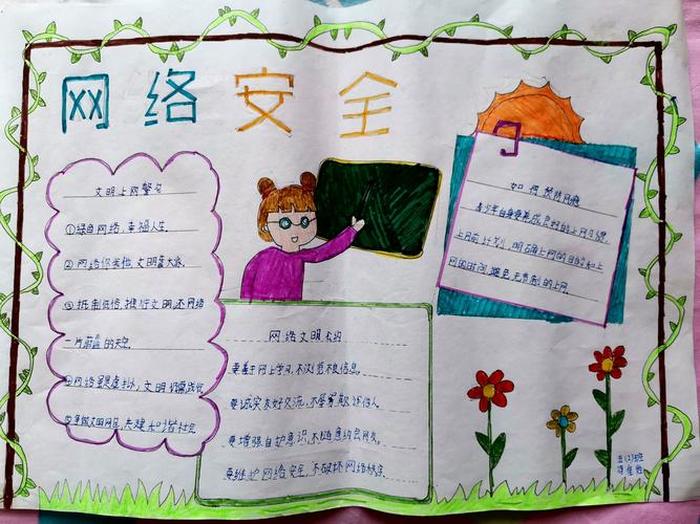 网络安全
文明上网警句
①绿色网络,幸福人生.
②网络你我他,文明靠大家.
③抵制低俗,推行文明,还网络
一片蔚蓝的天空.
④网络虽虚拟,文明
⑤争做文明网民,共建和谐社区
网络文明公约
要善于网上学习,不浏览不良信息.
要诚实友好交流,不侮辱欺诈他人.
要增强自护意识,不随意约会网友.
要维护网络安全,不破坏网络秩序.
如何预防网瘾
青少年自身要养成良好的上网习惯,
上网前计划,明确上网的目的和上
网的时间,避免无节制的上网.
五(2)班